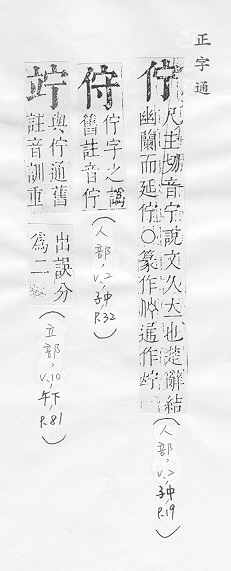 正字通
佇
尺主切音宁說文久大也楚辭結
幽蘭而延佇〇篆作 通作竚
(人部, v.2, 子中, P.19)
佇字之譌
舊註音佇
(人部, v.2, 子中, P.32)
竚
與佇通舊
註音訓重
出誤分
爲二
(立部, v.10, 午下, P.81)